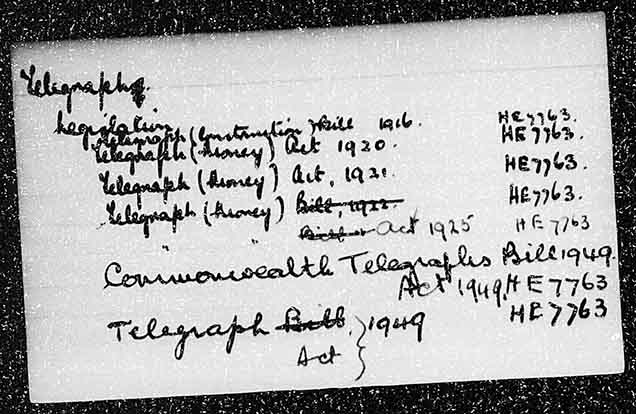 Telegraphs.
Legislation
Telegraph (Construction) Bill 1916. HE7763.
Telegraph (Money) Act 1920. HE7763.
Telegraph (Money) Act, 1921. HE7763.
Telegraph (Money) Bill, 1922. HE7763.
" " Bill Act 1925 HE7763
Commonwealth Telegraphs Bill 1949.
Act 1949. HE7763
Telegraph Bill, } 1949 HE7763
Act